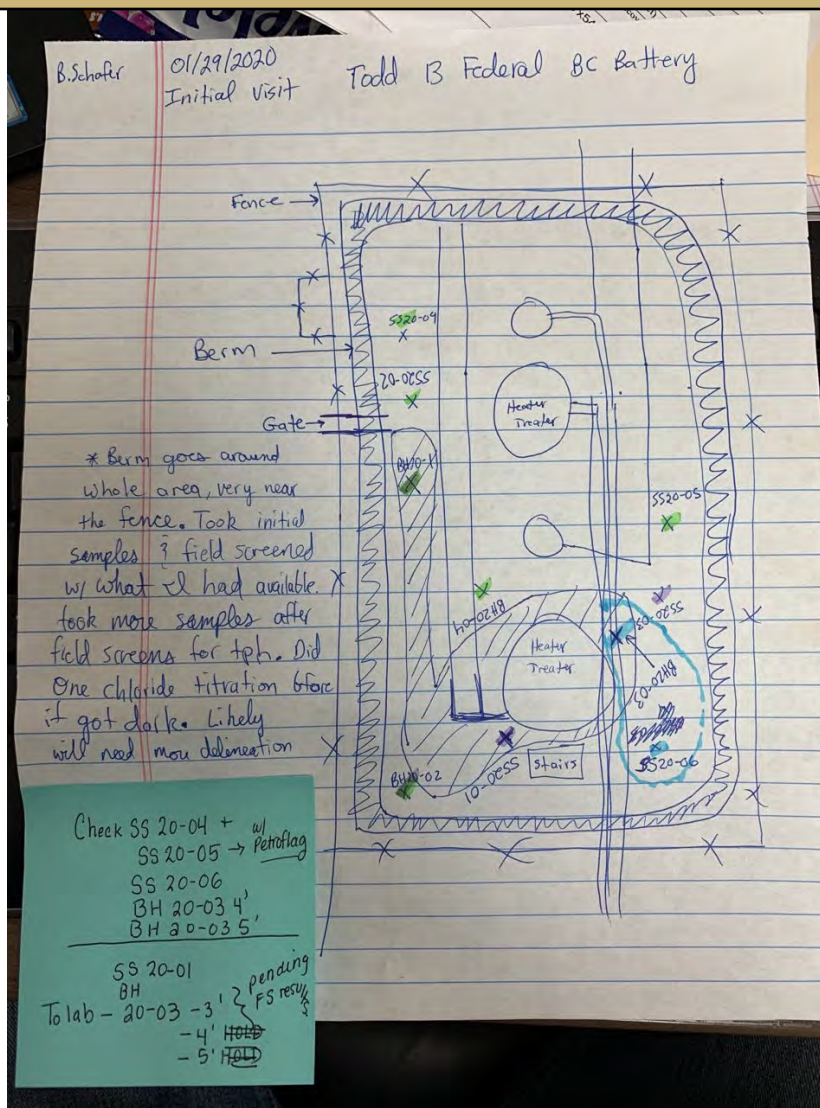 B.Schafer
01/29/2020
Initial Visit
Todd 13 Federal BC Battery
Fence
Berm
Gate
SS20-04
20-02SS
Heater
Treater
SS20-05
BH20-04
SS20-03
BH20-03
Heater
Treater
BH20-02
SS20-01
Stairs
SS20-06
* Berm goes around
whole area, very near
the fence. Took initial
samples & field screened
w/ what I had available.
took more samples after
field screens for tph. Did
One chloride titration before
it got dark. Likely
will need more delineation
Check SS 20-04 + w/
SS 20-05 → Petroflag
SS 20-06
BH 20-03 4'
BH 20-03 5'
SS 20-01
BH
To lab - 20-03 -3' } pending
FS results
- 4' HOLD
- 5' HOLD